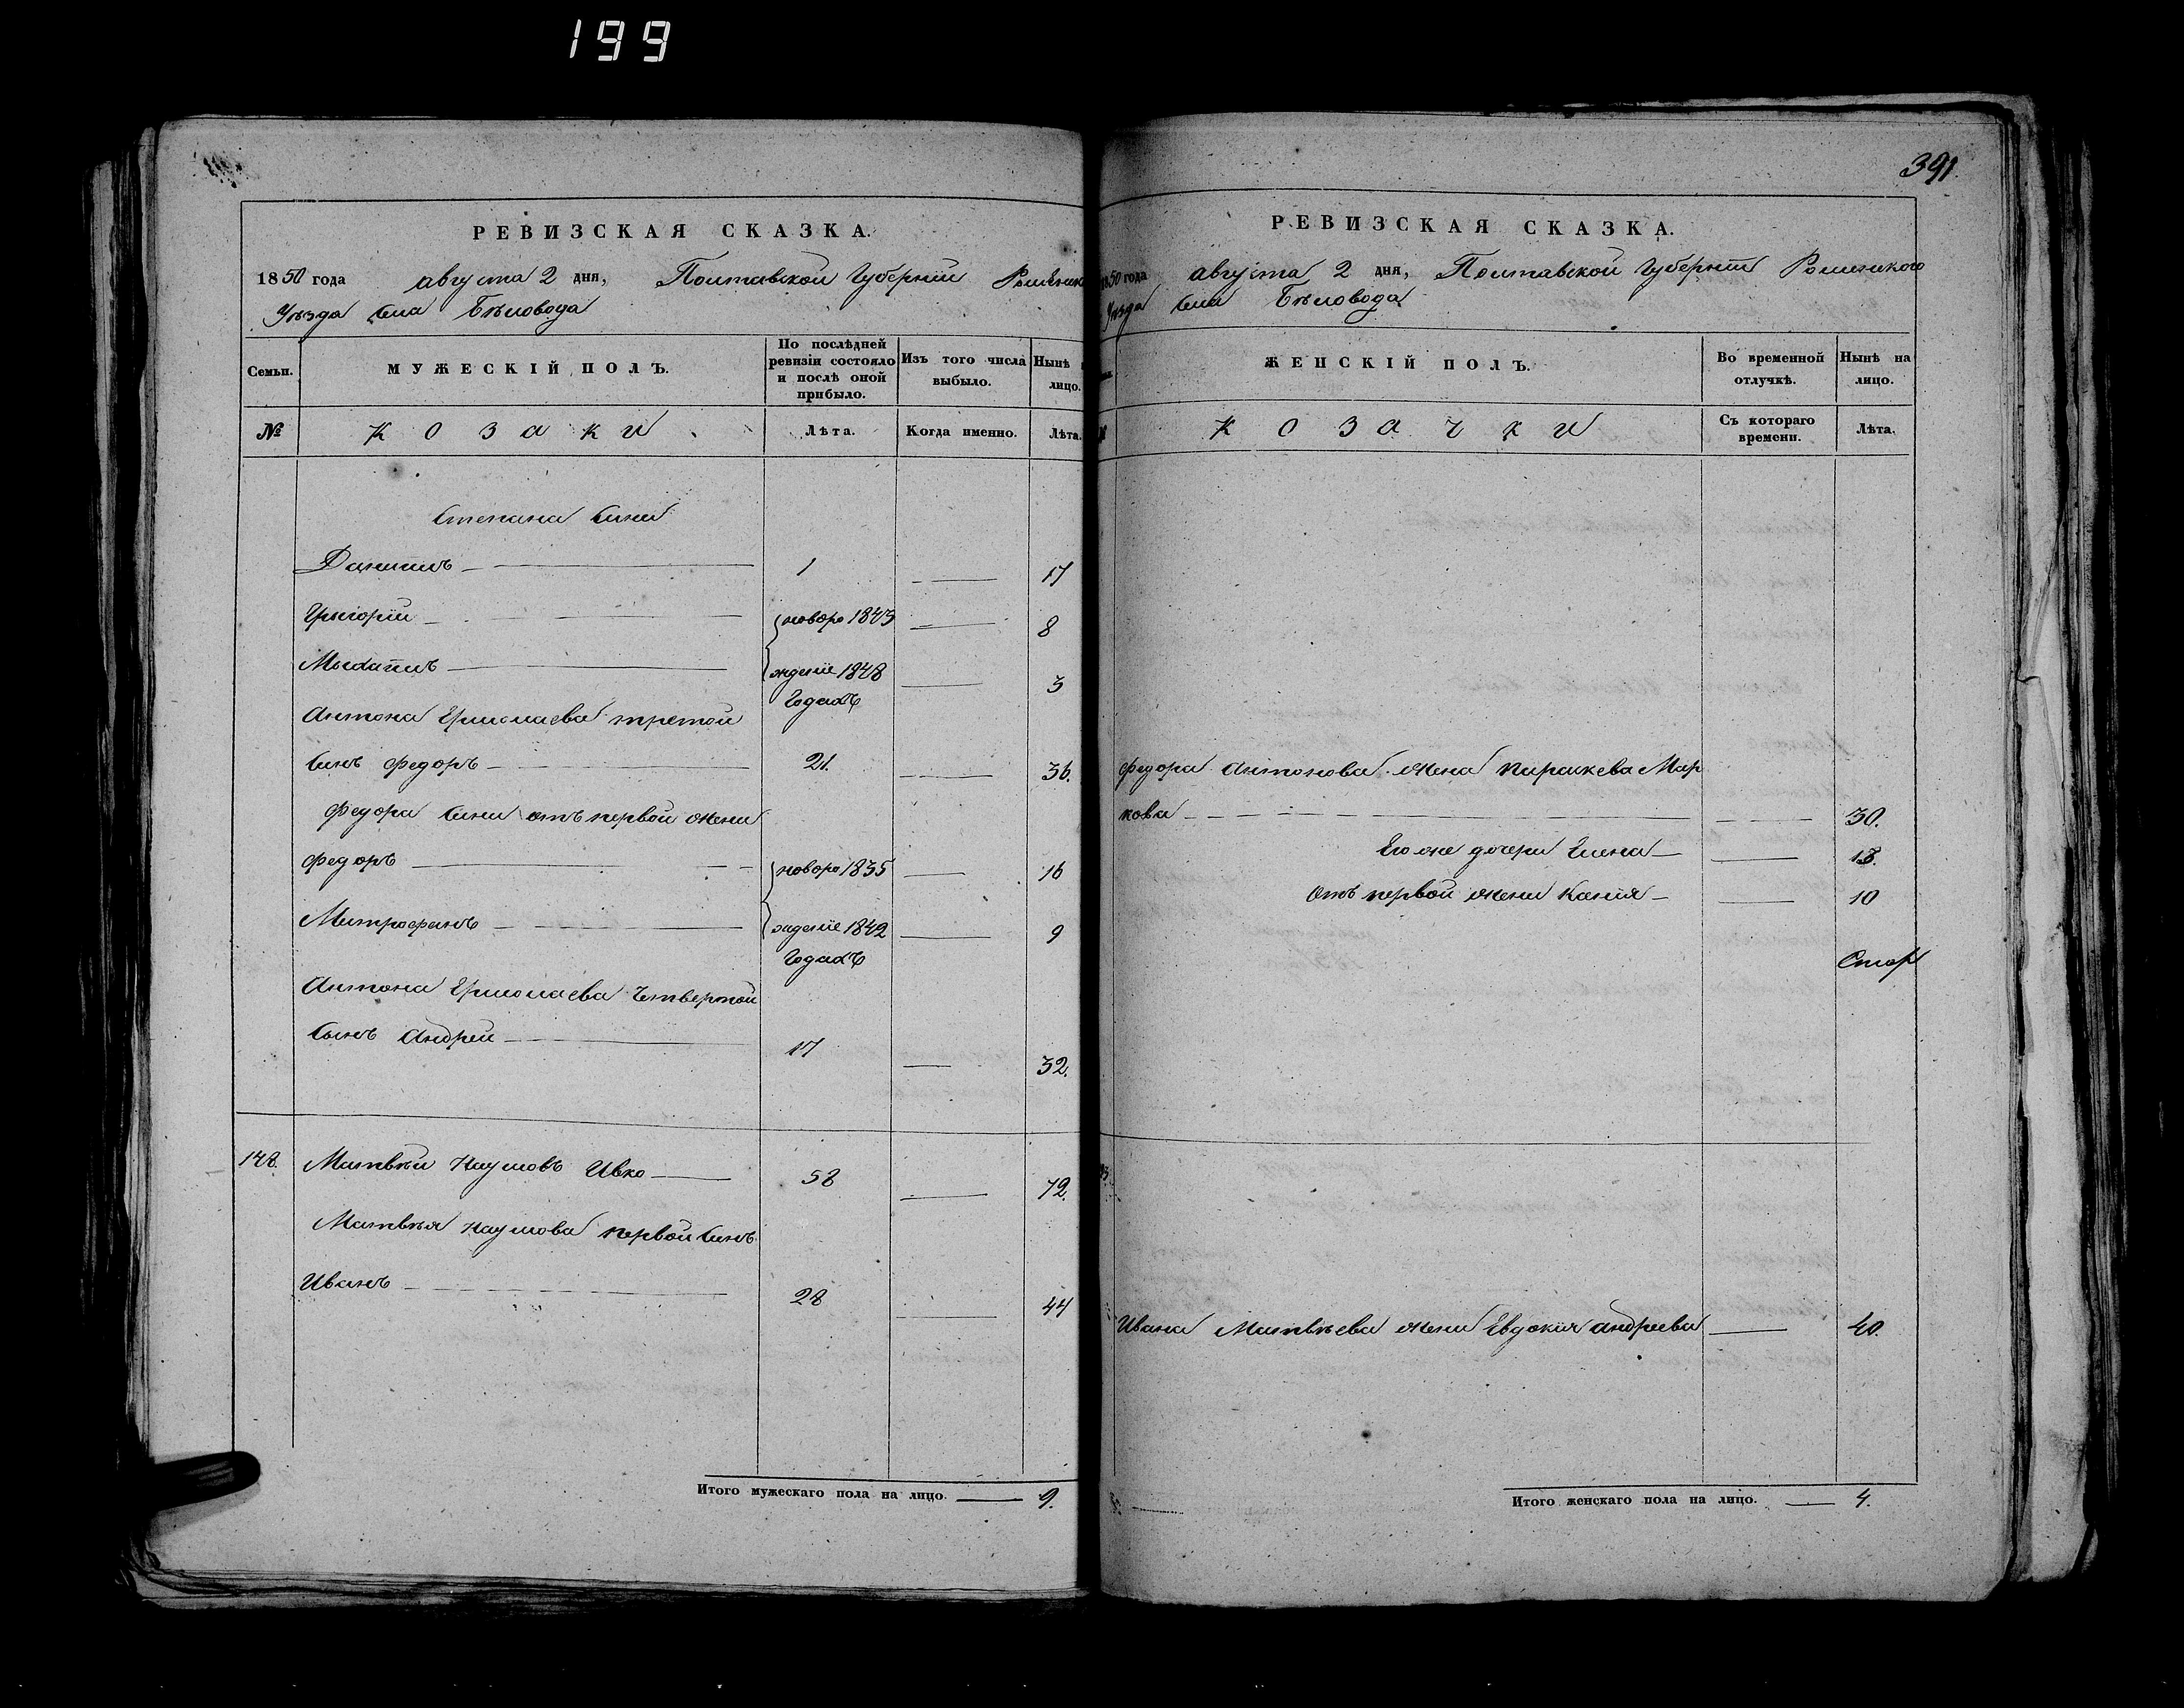 199
РЕВИЗСКАЯ СКАЗКА.
1850 года августа 2 дня, Полтавской Губерніи Роменск
Уѣзда села Бѣловода
Семьи.
МУЖЕСКІЙ ПОЛЪ.
По послѣдней ревизіи состояло и послѣ оной прибыло.
Изъ того числа выбыло.
Нынѣ
лицо.
№
Козаки
Лѣта.
Когда именно.
Лѣта.
Степана сини
Даниилъ 1 17
Григорій новоро 1843 8
Михаилъ ждение 1848 3
годахъ
Антона Ермолаева третой
синъ Федоръ 21. 36.
Федора сини отъ первой жени
Федоръ новоро 1835 16
Митрофанъ ждение 1842 9
годахъ
Антона Ермолаева четвертой
сынъ Андрей 17 32.
148. Матвѣй Наумовъ Ивко 58 72.
Матвѣя Наумова первой синъ
Иванъ 28 44
Итого мужескаго пола на лицо. 9.
391
РЕВИЗСКАЯ СКАЗКА.
1850 года августа 2 дня, Полтавской Губерніи Роменского
Уѣзда села Бѣловода
ЖЕНСКІЙ ПОЛЪ.
Во временной отлучкѣ.
Нынѣ на лицо.
Козачки
Съ котораго времени.
Лѣта.
Федора Антонова жена Параскева Мар
кова 30.
Его же дочери Елена 18.
Отъ первой жени Капія 10
Ивана Матвѣева жена Евдокия Андреева 40.
Итого женскаго пола на лицо. 4.